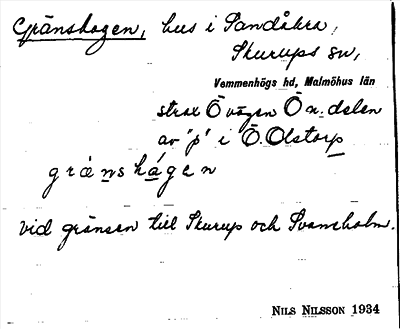 Gränshagen, hus i Sandåkra,
Skurups sn,
Vemmenhögs hd, Malmöhus län
strax Ö vägen Ö n. delen
av "p" i Ö. Olstorp
gräṉshágen
vid gränsen till Skurup och Svaneholm.
NILS NILSSON 1934